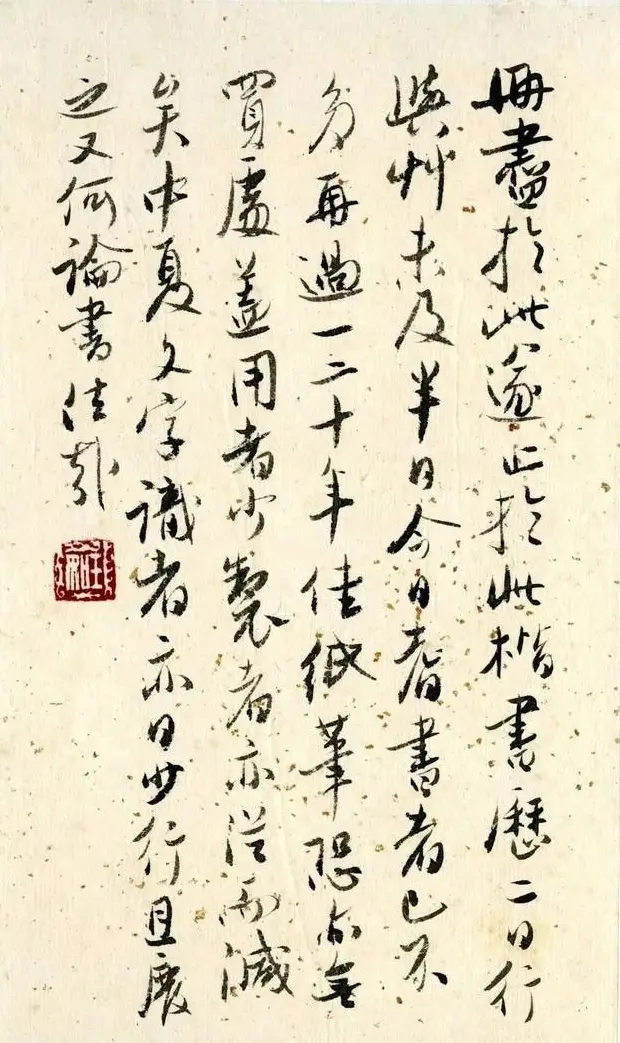 冊盡於此遂止於此楷書歷二日行
與艸未及半日今日耆書者已不
多再過一二十年佳紙筆恐亦無
買處蓋用者少製者亦從而減
矣中夏文字識者亦日少行且廢
之又何論書法哉